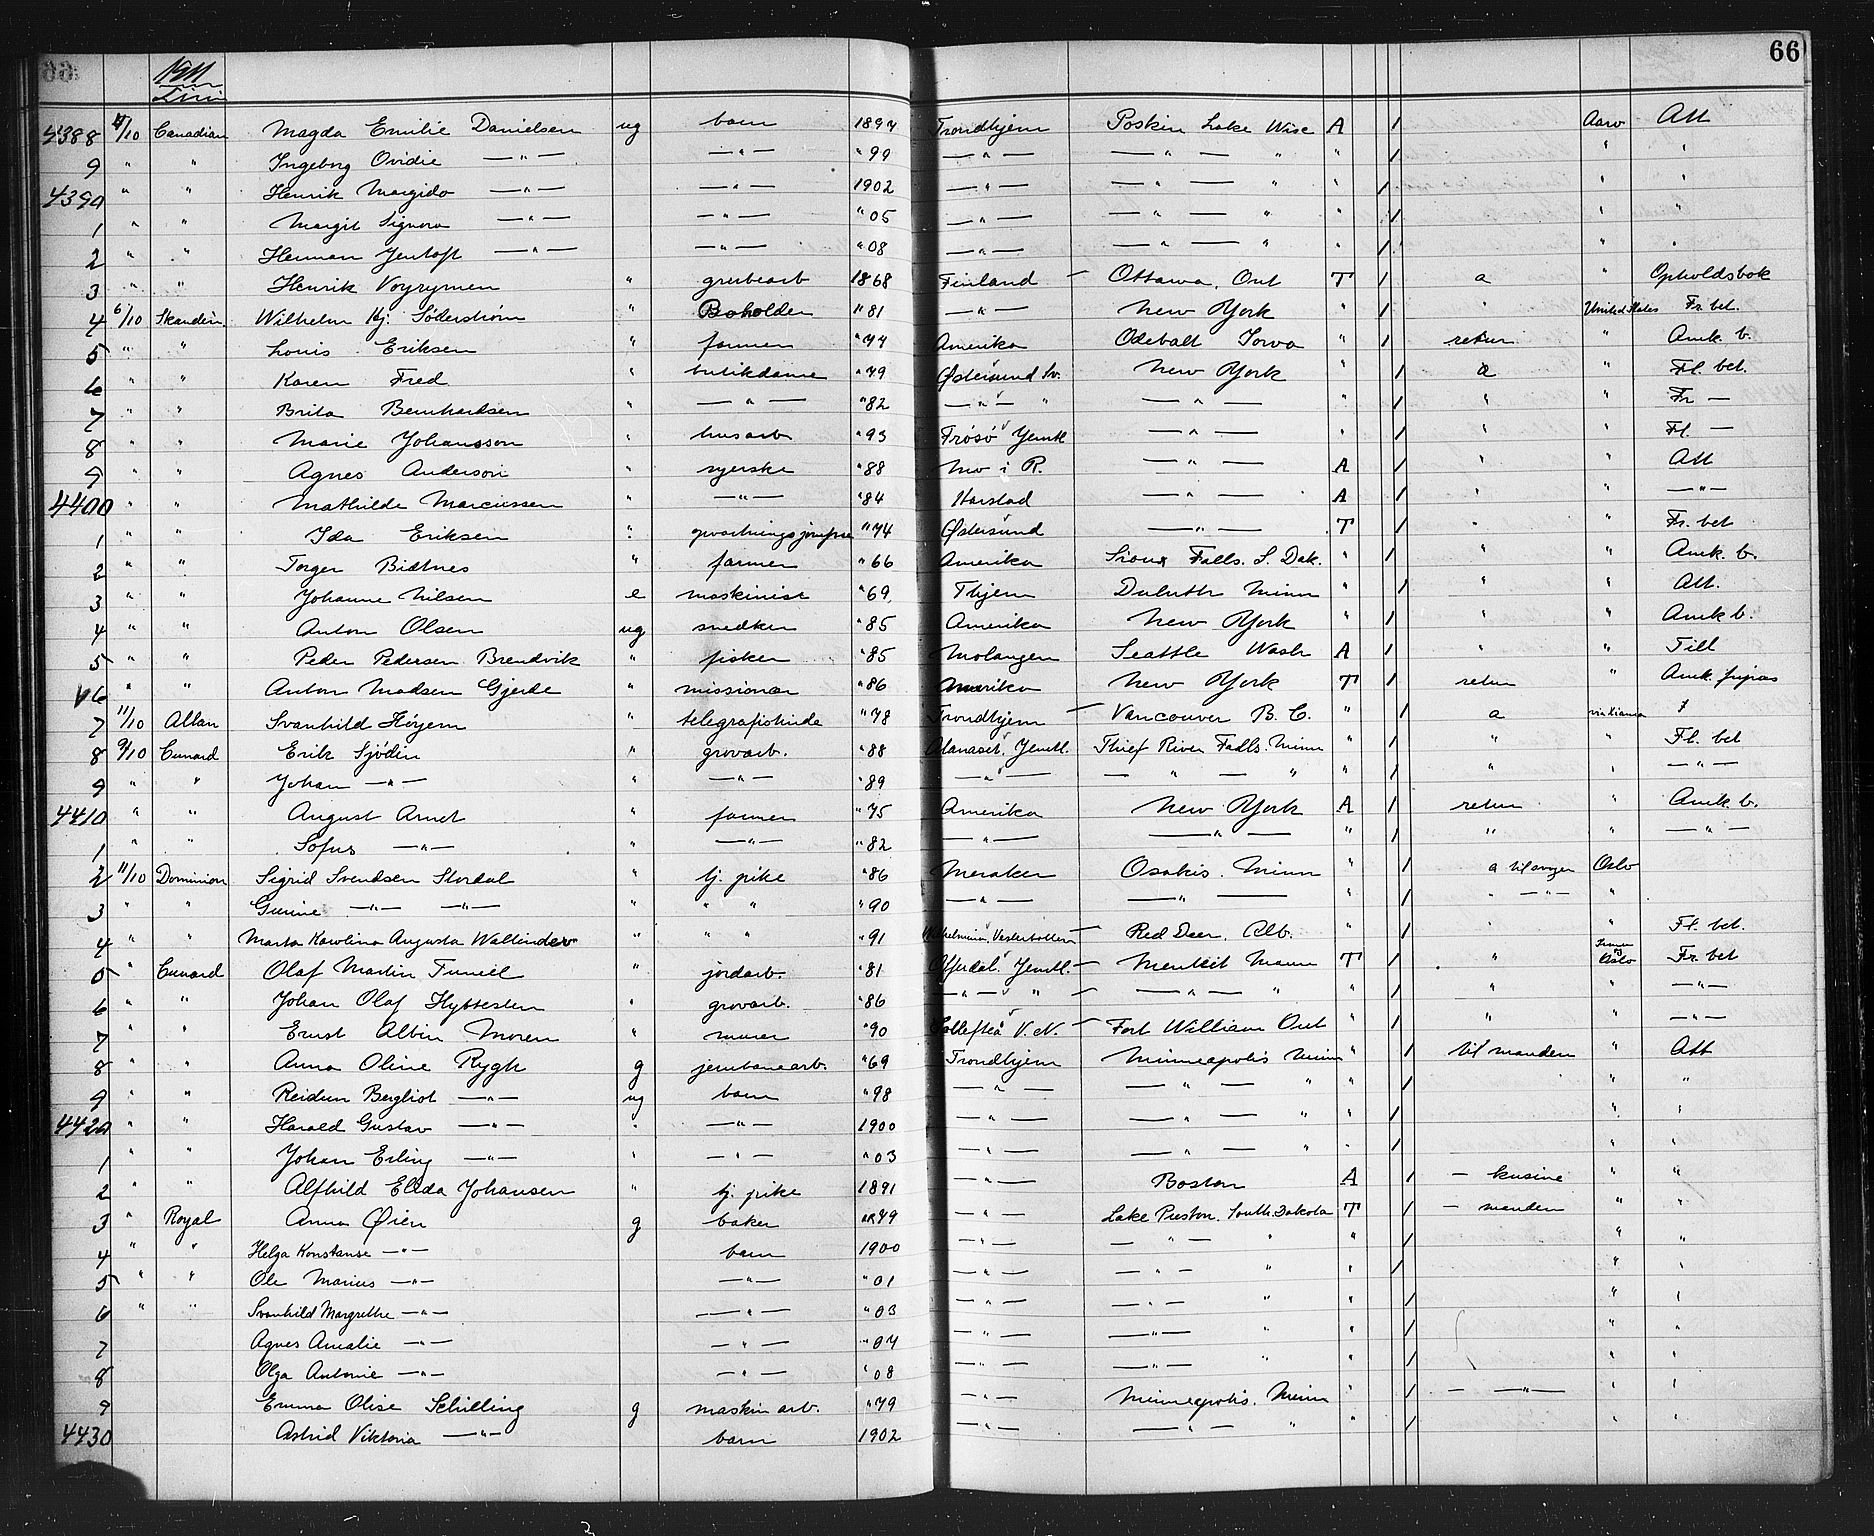 66
1911
Linie
4388 4/10 Canadian Magda Emilie Danielsen ug barn 1897 Trondhjem Poskin Lake Wisc A 1 Aaro Att
9 " " Ingeborg Ovidie —"— —"— "99 —"— —"— " " 1 " "
4390 " " Henrik Margido —"— —"— 1902 —"— —"— " " 1 " "
1 " " Margit Signora —"— —"— "05 —"— —"— " " 1 " "
2 " " Herman Jentoft —"— —"— "08 —"— —"— " " 1 " "
3 " " Henrik Voyrymen " grubearb 1868 Finland — Ottawa, Ont T 1 a " Opholdsbok
4 6/10 Skandin. Wilhelm Hj. Söderström " Boholder "81 —"— New York " 1 " United States Fr. bet.
5 " " Louis Eriksen " farmer "74 Amerika Odebalt Iowa " 1 retur " Amk. b.
6 " " Karen Fred " butikdame "79 Østersund Sv. New York " 1 a " Fl. bet.
7 " " Brita Bernhardsen " —"— "82 —"— " —"— " 1 " " Fr —
8 " " Marie Johansson " husarb "93 Frösö Jemtl —"— " 1 " " Fl. —
9 " " Agnes Anderson " syerske "88 Mo i R. —"— A 1 " " Att
4400 " " Mathilde Marcussen " —"— "84 Harstad —"— A 1 " " —"—
1 " " Ida Eriksen " opvartningsjomfru "74 Østersund —"— T 1 " " Fr. bet
2 " " Torger Bidtnes " farmer "66 Amerika Sioux Falls. S. Dak. " 1 " " Amk. b.
3 " " Johanne Nilsen e maskinist "69 Thjem Duluth Minn " 1 " " Att.
4 " " Anton Olsen ug snedker "85 Amerika New York " 1 " " Amk b.
5 " " Peder Pedersen Brendvik " fisker "85 Malangen Seattle Wash A 1 " " Till
6 " " Anton Madsen Gjerde " missionær "86 Amerika New York T 1 retur " Amk. fripas
7 11/10 Allan Svanhild Høyem " telegrafistinde "78 Trondhjem — Vancouver B. C. " 1 a via Xiania
8 9/10 Cunard Erik Sjödin " grovarb. "88 Alanäset, Jemtl. Thief River Falls. Minn " 1 " " Fl. bet
9 " " Johan —"— " —"— "89 —"— — " — " " 1 " " —"—
4410 " " August Arndt " farmer "75 Amerika New York A 1 retur " Amk. b.
1 " " Sofus —"— " —"— "82 —"— —"— " 1 " " —"—
2 11/10 Dominion Sigrid Svendsen Stordal " tj. pike "86 Meraker Osakis. Minn " 1 Oslo
3 " " Gurine —"— —"— " " " "90 —"— —"— " 1 —"— "
4 " " Marta Karolina Augusta Wallinder " " " "91 Wilhelmina, Vesterbotten — Red Deer, Alb. " 1 " " Fl. bet.
5 " Cunard Olaf Martin Funeil " jordarb. "81 Offerdal. Jemtl. — T 1 " Oslo Fr. bet
6 " " Johan Olof Hyttesten " grovarb. "86 —"— " — —"— " " 1 " " —"—
7 " " Ernst Albin Moren " murer "90 Sollefteå V. N. — Fort William Ont " 1 " " —"—
8 " " Anna Oline Rygh g jernbanearb. "69 Trondhjem Minneapolis Minn " 1 til manden " Att
9 " " Reidun Bergliot —"— ug barn "98 —"— —"— " " 1 " "
4420 " " Harald Gustav —"— " —"— 1900 —"— —"— " " 1 " "
1 " " Johan Erling —"— " —"— "03 —"— —"— " " 1 " "
2 " " Alfhild Elida Johansen " tj. pike 1891 —"— Boston A 1 — kusine " "
3 " Royal Anna Øien g baker "79 —"— Lake Preston. South. Dakota T 1 — manden " "
4 " " Helga Konstanse —"— barn 1900 —"— —"— " " 1 " "
5 " " Ole Marius —"— —"— "01 —"— —"— " " 1 " "
6 " " Svanhild Margrethe —"— —"— "03 —"— —"— " " 1 " "
7 Agnes Amalie —"— —"— "04 —"— —"— " " 1 " "
8 Olga Antonie —"— —"— "08 —"— —"— " " 1 " "
9 Emma Olise Schilling g maskin arb. "79 —"— Minneapolis. Minn " 1 — —"— " "
4430 Astrid Viktoria —"— barn 1902 —"— —"— " " 1 " "